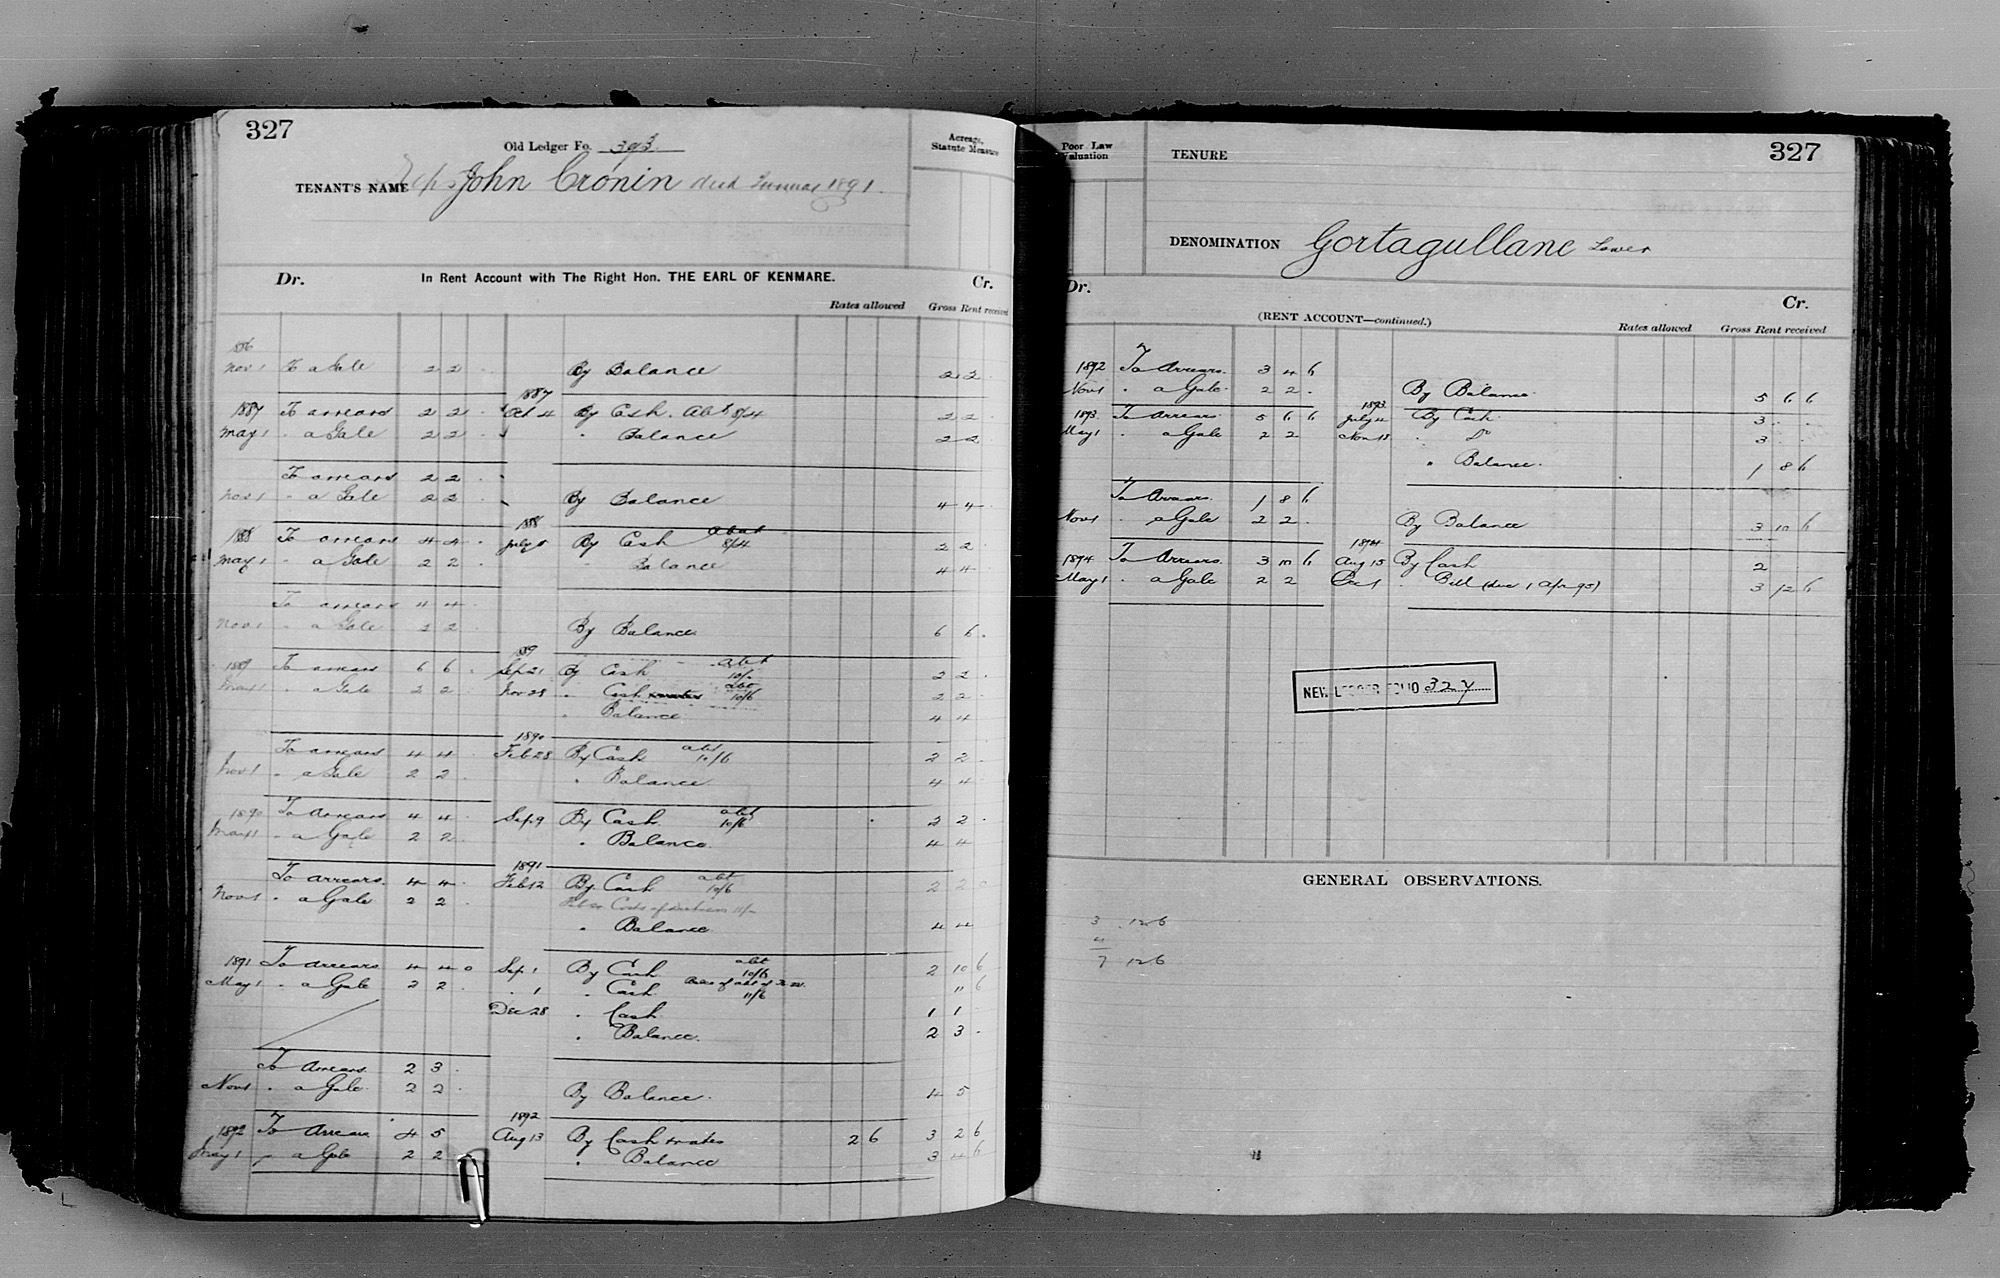 327
Old Ledger Fo. 393
Acreage, Statute Measure
TENANT'S NAME Reps John Cronin died January 1891.
Dr. In Rent Account with The Right Hon. THE EARL OF KENMARE. Cr.
Rates allowed Gross Rent received
Nov 1 To a Gale 2 2 - By Balance 2 2 -
1887
1887 To arrears 2 2 - Oct 4 By Cash. Abt 8/4 2 2 -
May 1 " a Gale 2 2 - " Balance 2 2 -
To arrears 2 2 -
Nov 1 " a Gale 2 2 - By Balance 4 4 -
1888
1888 To arrears 4 4 - July 5 By Cash Abat 8/4 2 2 -
May 1 " a Gale 2 2 - " Balance 4 4 -
To arrears 4 4 -
Nov 1 " a Gale 2 2 - By Balance 6 6 -
89
1889 To arrears 6 6 - Sep 21 By Cash abt 10/- 2 2 -
May 1 " a Gale 2 2 - Nov 28 " Cash abt 10/6 2 2 -
" Balance 4 4
1890
To arrears 4 4 - Feb 28 By Cash abt 10/6 2 2 -
Nov 1 " a Gale 2 2 - " Balance 4 4 -
1890 To Arrears 4 4 - Sep 9 By Cash abt 10/6 2 2 -
May 1 " a Gale 2 2 - " Balance 4 4 -
1891
To arrears 4 4 - Feb 12 By Cash abt 10/6 2 2 0
Nov 1 " a Gale 2 2 -
" Balance 4 4
1891 To arrears 4 4 0 Sep 1 By Cash abt 10/6 2 10 6
May 1 " a Gale 2 2 - " 1 " Cash 11/6 11 6
Dec 28 " Cash 1 1
" Balance 2 3 -
To Arrears 2 3 -
Nov 1 " a Gale 2 2 - By Balance 4 5
1892
1892 To Arrears 4 5 Aug 13 By Cash & rates 2 6 3 2 6
May 1 " a Gale 2 2 " Balance 3 4 6
Poor Law Valuation
TENURE
327
DENOMINATION Gortagullane Lower
Dr. Cr.
(RENT ACCOUNT—continued.)
Rates allowed Gross Rent received
1892 To Arrears 3 4 6
Nov 1 " a Gale 2 2 - By Balance 5 6 6
1893
1893 To Arrears 5 6 6 July 4 By Cash 3 - -
May 1 " a Gale 2 2 Nov 18 " Do 3 - -
" Balance 1 8 6
To Arrears 1 8 6
Nov 1 " a Gale 2 2 - By Balance 3 10 6
1894
1894 To Arrears 3 10 6 Aug 15 By Cash 2
May 1 " a Gale 2 2 Dec 1 " Bill (due 1 Apr 95) 3 12 6
NEW LEDGER FOLIO 327
GENERAL OBSERVATIONS.
3 12 6
4
7 12 6